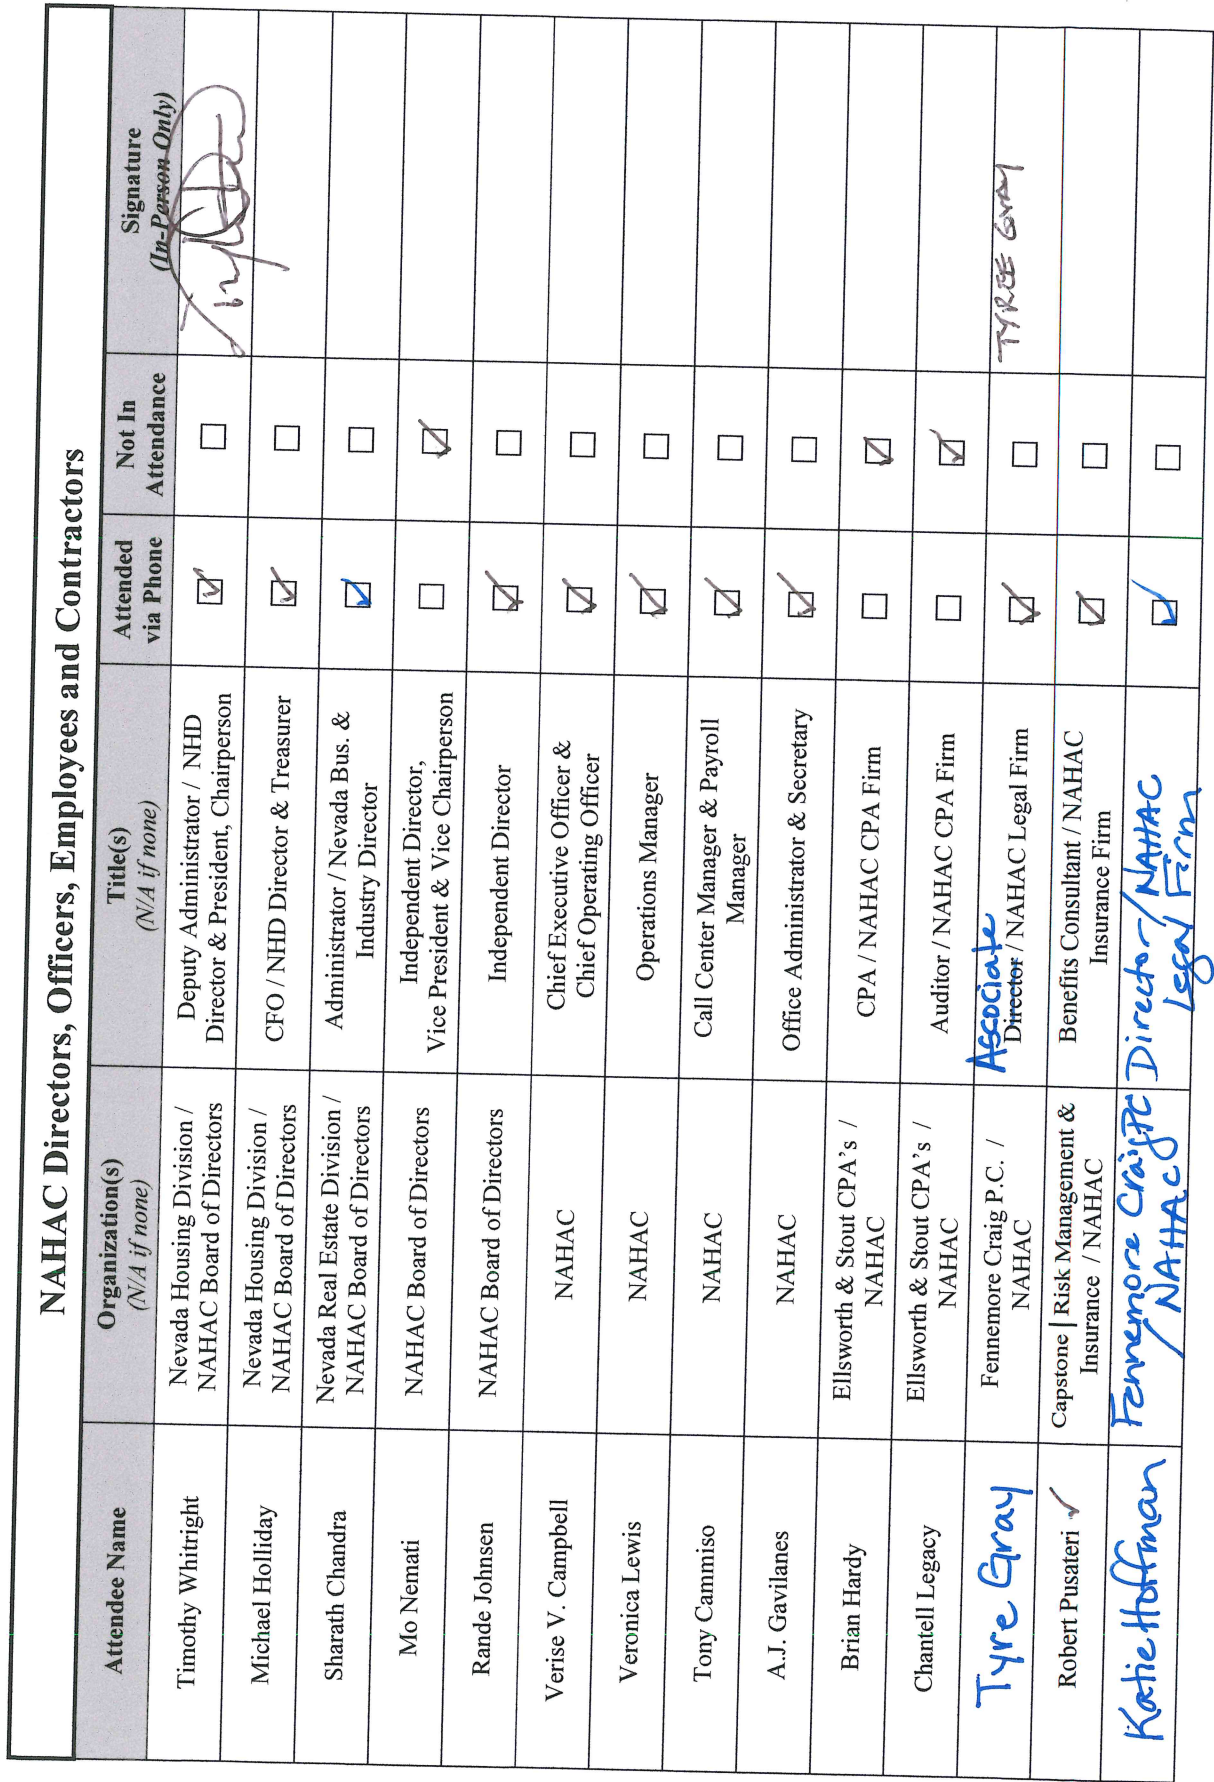 NAHAC Directors, Officers, Employees and Contractors
Attendee Name
Organization(s)
(N/A if none)
Title(s)
(N/A if none)
Attended
via Phone
Not In
Attendance
Signature
(In-Person Only)
Timothy Whitright
Nevada Housing Division /
NAHAC Board of Directors
Deputy Administrator / NHD
Director & President, Chairperson
Michael Holliday
Nevada Housing Division /
NAHAC Board of Directors
CFO / NHD Director & Treasurer
Sharath Chandra
Nevada Real Estate Division /
NAHAC Board of Directors
Administrator / Nevada Bus. &
Industry Director
Mo Nemati
NAHAC Board of Directors
Independent Director,
Vice President & Vice Chairperson
Rande Johnsen
NAHAC Board of Directors
Independent Director
Verise V. Campbell
NAHAC
Chief Executive Officer &
Chief Operating Officer
Veronica Lewis
NAHAC
Operations Manager
Tony Cammiso
NAHAC
Call Center Manager & Payroll
Manager
A.J. Gavilanes
NAHAC
Office Administrator & Secretary
Brian Hardy
Ellsworth & Stout CPA's /
NAHAC
CPA / NAHAC CPA Firm
Chantell Legacy
Ellsworth & Stout CPA's /
NAHAC
Auditor / NAHAC CPA Firm
Tyre Gray
Fennemore Craig P.C. /
NAHAC
Associate
Director / NAHAC Legal Firm
TYREE GRAY
Robert Pusateri
Capstone | Risk Management &
Insurance / NAHAC
Benefits Consultant / NAHAC
Insurance Firm
Katie Hoffman
Fennemore Craig PC
/NAHAC
Director/NAHAC
Legal Firm